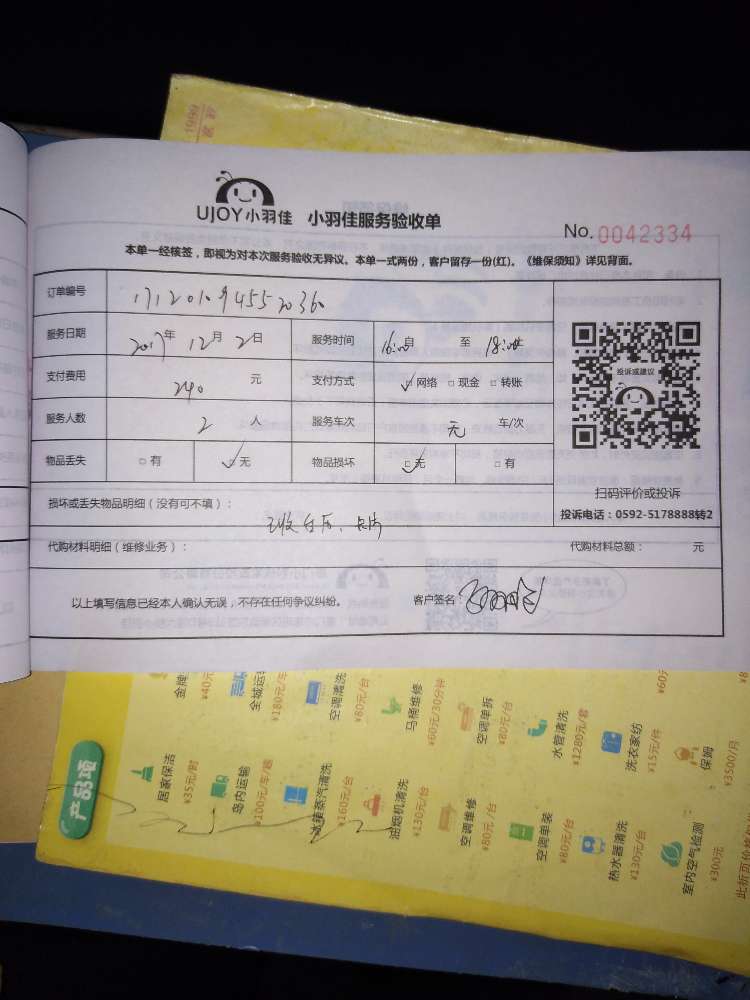 1999
UJOY小羽佳 小羽佳服务验收单
No. 0042334
本单一经核签，即视为对本次服务验收无异议。本单一式两份，客户留存一份(红)。《维保须知》详见背面。
订单编号
服务日期 2017年 12月 2日 服务时间 16:00 至 18:00
支付费用 240 元 支付方式 网络 现金 转账
服务人数 2 人 服务车次 元 车/次
物品丢失 有 无 物品损坏 无 有
投诉或建议
扫码评价或投诉
投诉电话：0592-5178888转2
损坏或丢失物品明细（没有可不填）：
代购材料明细（维修业务）： 代购材料总额： 元
以上填写信息已经本人确认无误，不存在任何争议纠纷。 客户签名：
产品项
金牌
¥40元
全城运
¥180元/车
空调清洗
¥80元/台
马桶维修
¥60元/30分钟
空调单拆
¥80元/台
水管清洗
¥1280元/套
洗衣家纺
¥15元/件
保姆
¥3500/月
居家保洁
¥35元/时
岛内运输
¥100元/车/趟
蒸汽清洗
¥160元/台
油烟机清洗
¥130元/台
空调维修
¥80元/台
空调单装
¥80元/台
热水器清洗
¥130元/台
室内空气检测
¥300元